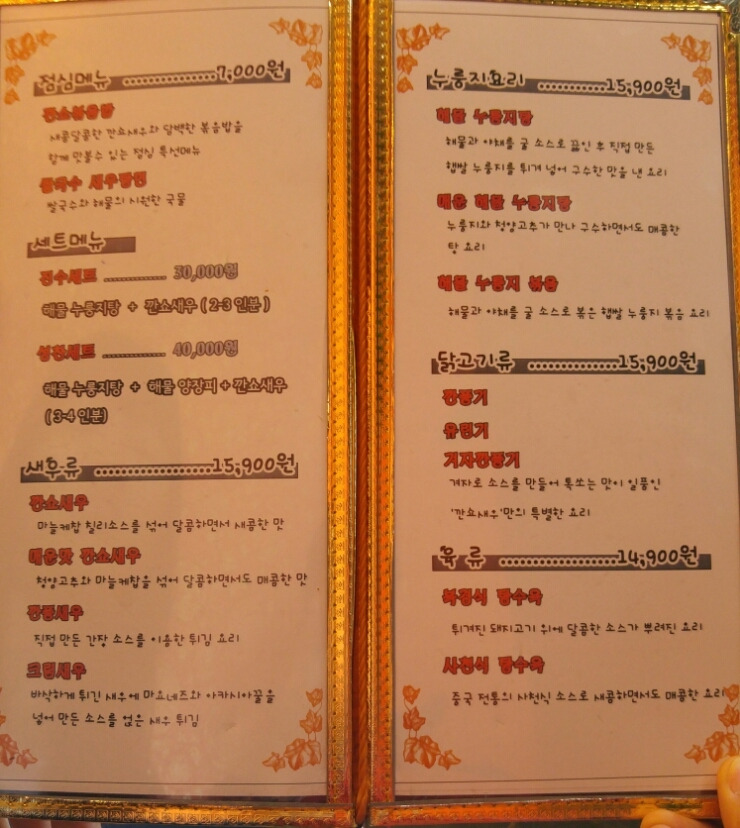 점심메뉴 ...............7,000원
깐쇼볶음밥
새콤달콤한 깐쇼새우와 담백한 볶음밥을
함께 맛볼수 있는 점심 특선메뉴
쌀국수와 해물의 시원한 국물
세트메뉴
진수세트 .............. 30,000원
해물 누룽지탕 + 깐쇼새우 ( 2-3 인분 )
성찬세트 .............. 40,000원
해물 누룽지탕 + 해물 양장피 + 깐쇼새우
( 3-4 인분)
새우류 ...................15,900원
깐쇼새우
마늘케찹 칠리소스를 섞어 달콤하면서 새콤한 맛
매운맛 깐쇼새우
청양고추와 마늘케찹을 섞어 달콤하면서도 매콤한 맛
깐풍새우
직접 만든 간장 소스를 이용한 튀김 요리
크림새우
바삭하게 튀긴 새우에 마요네즈와 아카시아꿀을
넣어 만든 소스를 얹은 새우 튀김
누룽지요리 ...........15,900원
해물 누룽지탕
해물과 야채를 굴 소스로 끓인 후 직접 만든
햅쌀 누룽지를 튀겨 넣어 구수한 맛을 낸 요리
매운 해물 누룽지탕
누룽지와 청양고추가 만나 구수하면서도 매콤한
탕 요리
해물 누룽지 볶음
해물과 야채를 굴 소스로 볶은 햅쌀 누룽지 볶음 요리
닭고기류 ...............15,900원
깐풍기
유린기
겨자깐풍기
겨자로 소스를 만들어 톡쏘는 맛이 일품인
'깐쇼새우'만의 특별한 요리
육 류 ...................14,900원
북경식 탕수육
튀겨진 돼지고기 위에 달콤한 소스가 뿌려진 요리
사천식 탕수육
중국 전통의 사천식 소스로 새콤하면서도 매콤한 요리